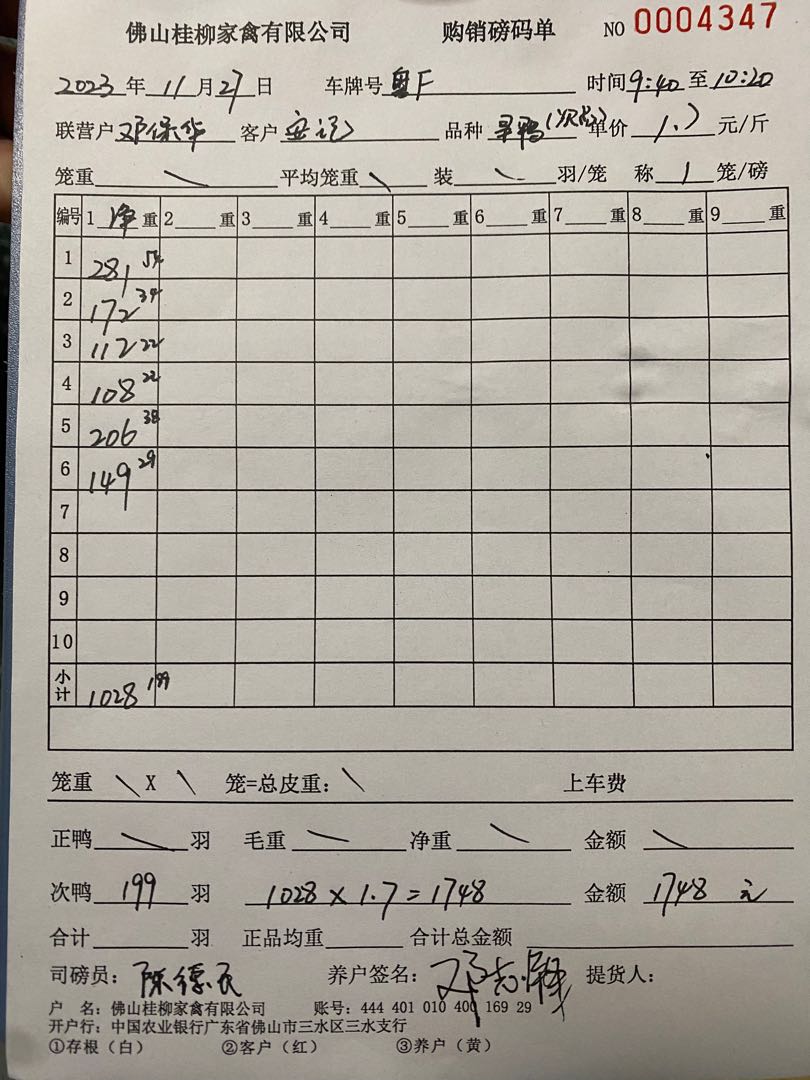 佛山桂柳家禽有限公司 购销磅码单 NO 0004347
2023年11月27日 车牌号 粤F 时间9:40至10:20
联营户 邓保华 客户 品种 单价 1.7 元/斤
笼重 \ 平均笼重 \ 装 \ 羽/笼 称 1 笼/磅
编号 1 净 重 2 重 3 重 4 重 5 重 6 重 7 重 8 重 9 重
1 281 54
2 172 34
3 112 22
4 108 22
5 206 38
6 149 29
7
8
9
10
小计 1028 199
笼重 \ X \ 笼=总皮重: \ 上车费
正鸭 \ 羽 毛重 \ 净重 \ 金额 \
次鸭 199 羽 1028 x 1.7 = 1748 金额 1748 元
合计 羽 正品均重 合计总金额
司磅员: 陈德 养户签名: 邓志 提货人:
户 名: 佛山桂柳家禽有限公司 账号: 444 401 010 400 169 29
开户行: 中国农业银行广东省佛山市三水区三水支行
①存根(白) ②客户(红) ③养户(黄)